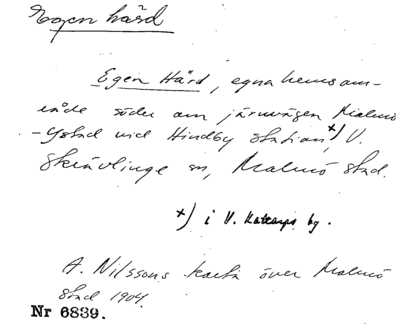 Egen härd
Egen Härd, egnahemsom-
råde söder om järnvägen Malmö
-Ystad vid Hindby station, x) V.
Skrävlinge sn, Malmö stad.
x) i V. Kattarps by.
A. Nilssons karta över Malmö
stad 1904.
Nr 6839.